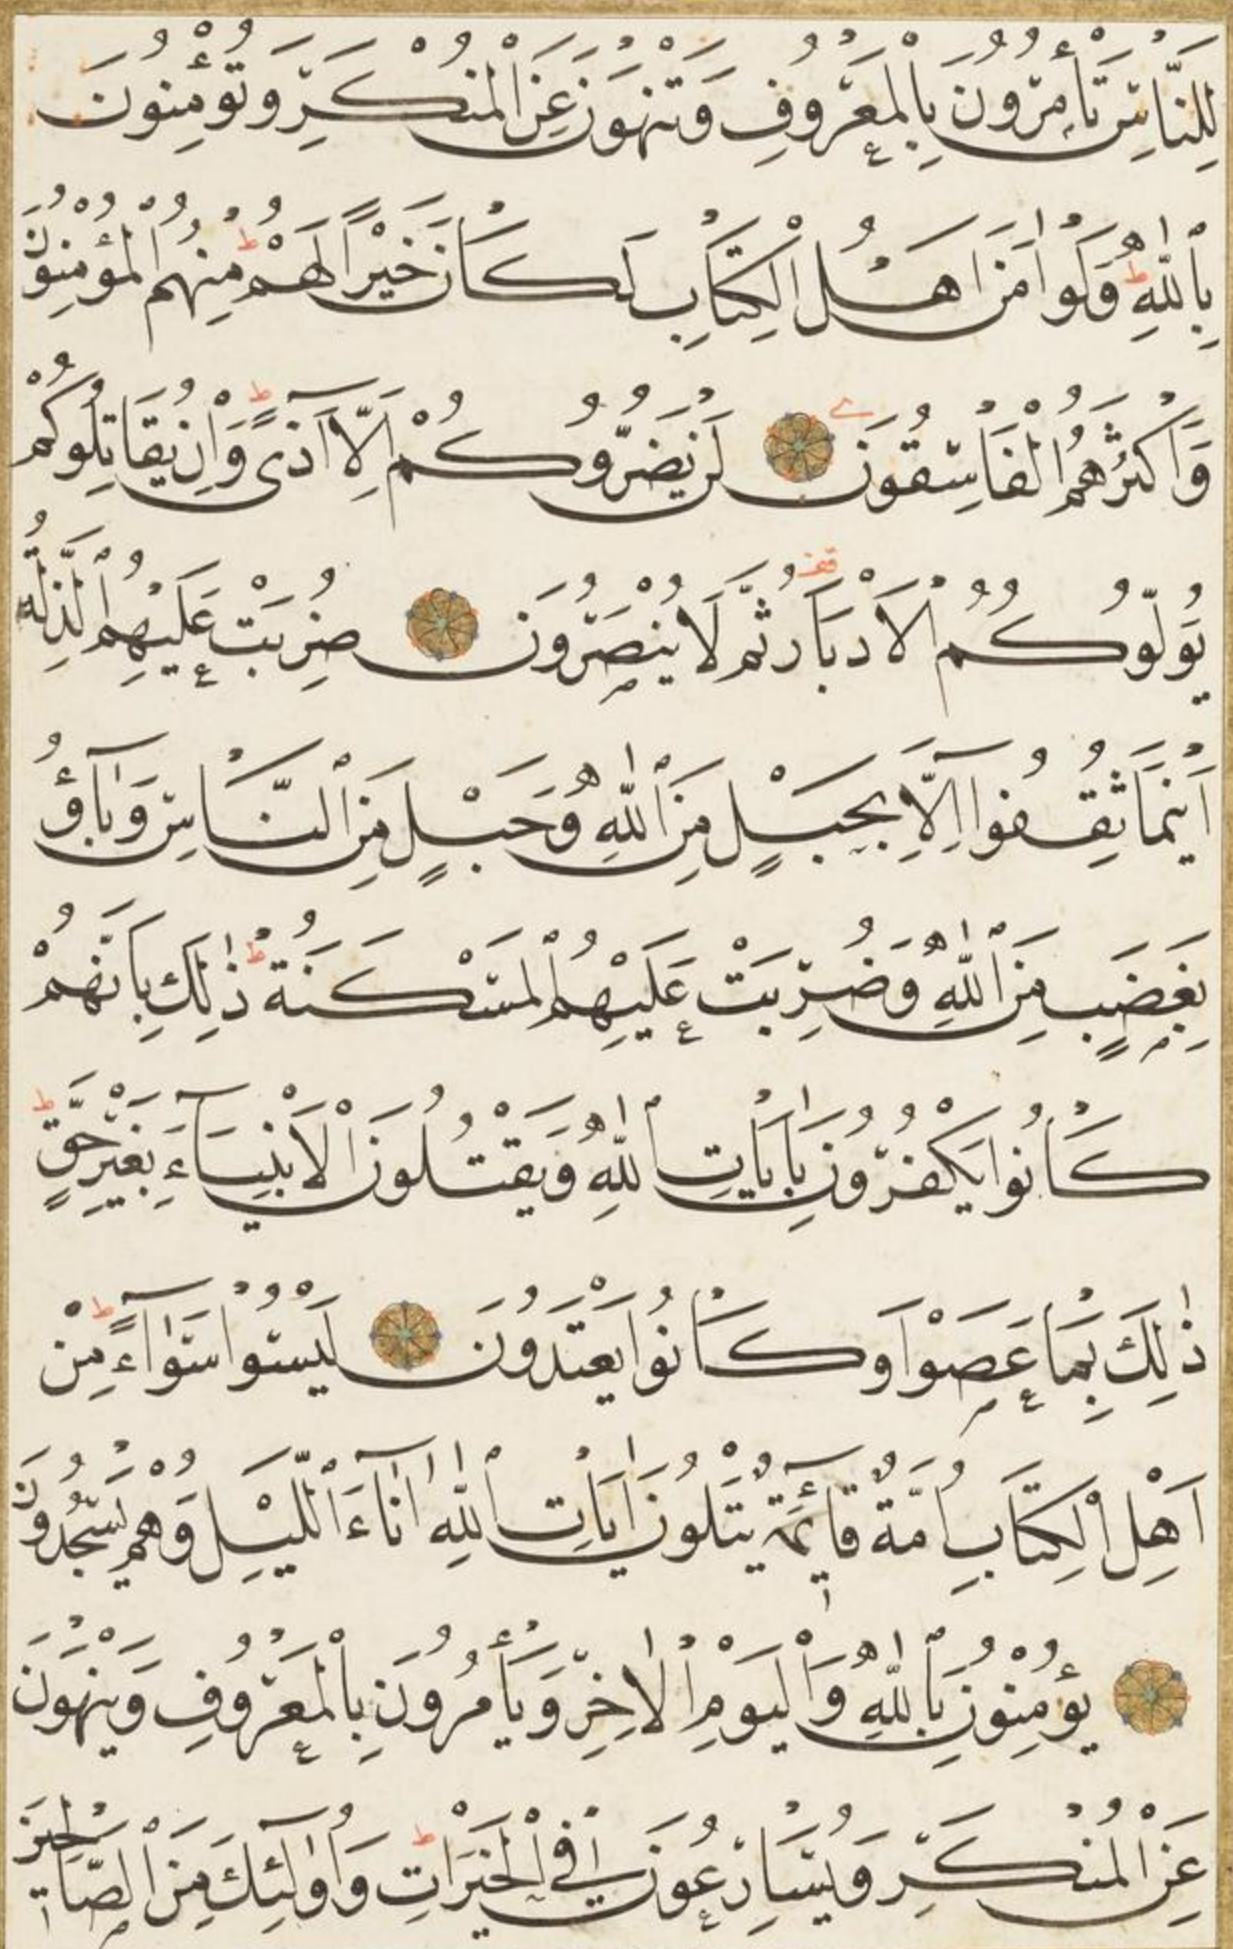 لِلنَّاسِ تَأْمُرُونَ بِالْمَعْرُوفِ وَتَنْهَوْنَ عَنِ الْمُنْكَرِ وَتُؤْمِنُونَ
بِاللّٰهِ ؕ وَلَوْ اٰمَنَ اَهْلُ الْكِتَابِ لَكَانَ خَيْرًا لَهُمْ ؕ مِنْهُمُ الْمُؤْمِنُونَ
وَاَكْثَرُهُمُ الْفَاسِقُونَ لَنْ يَضُرُّوكُمْ اِلَّا اَذًى ؕ وَاِنْ يُقَاتِلُوكُمْ
يُوَلُّوكُمُ الْاَدْبَارَ ثُمَّ لَا يُنْصَرُونَ ضُرِبَتْ عَلَيْهِمُ الذِّلَّةُ
اَيْنَمَا ثُقِفُوا اِلَّا بِحَبْلٍ مِنَ اللّٰهِ وَحَبْلٍ مِنَ النَّاسِ وَبَآؤُ
بِغَضَبٍ مِنَ اللّٰهِ وَضُرِبَتْ عَلَيْهِمُ الْمَسْكَنَةُ ؕ ذٰلِكَ بِاَنَّهُمْ
كَانُوا يَكْفُرُونَ بِاٰيَاتِ اللّٰهِ وَيَقْتُلُونَ الْاَنْبِيَآءَ بِغَيْرِ حَقٍّ ؕ
ذٰلِكَ بِمَا عَصَوْا وَكَانُوا يَعْتَدُونَ لَيْسُوا سَوَآءً ؕ مِنْ
اَهْلِ الْكِتَابِ اُمَّةٌ قَآئِمَةٌ يَتْلُونَ اٰيَاتِ اللّٰهِ اٰنَآءَ اللَّيْلِ وَهُمْ يَسْجُدُونَ
يُؤْمِنُونَ بِاللّٰهِ وَالْيَوْمِ الْاٰخِرِ وَيَأْمُرُونَ بِالْمَعْرُوفِ وَيَنْهَوْنَ
عَنِ الْمُنْكَرِ وَيُسَارِعُونَ فِي الْخَيْرَاتِ ؕ وَاُولٰٓئِكَ مِنَ الصَّالِحِينَ